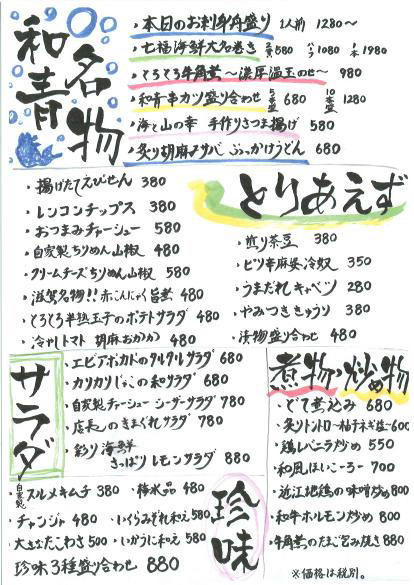 和青 名物
・本日のお刺身盛り 1人前 1280〜
・七福海鮮大名巻き 2貫580 ハーフ1080 1本1980
・とろとろ牛煮〜濃厚温玉のせ〜 980
・和青串カツ盛り合わせ 5本盛680 10本盛1280
・海と山の幸 手作りさつま揚げ 580
・炙り胡麻サバ ぶっかけうどん 680
・揚げたてえびせん 380
・レンコンチップス 380
・おつまみチャーシュー 580
・自家製ちりめん山椒 480
・クリームチーズちりめん山椒 580
・滋賀名物!!赤こんにゃく旨煮 480
・とろとろ半熟玉子のポテトサラダ 480
・冷やしトマト 胡麻おかか 480
とりあえず
・煎り茶豆 380
・ピリ辛麻婆冷奴 350
・うまだれキャベツ 280
・やみつききゅうり 380
・漬物盛り合わせ 480
サラダ
・エビアボカドのタルタルサラダ 680
・カリカリじゃこの和サラダ 680
・自家製チャーシューシーザーサラダ 780
・店長のきまぐれサラダ 780
・彩り海鮮
さっぱりレモンサラダ 880
煮物・炒め物
・どて煮込み 680
・炙りトントロ〜柚子ネギ塩〜 600
・鶏レバニラ炒め 550
・和風ほいこーろー 700
・近江地鶏の味噌炒め 800
・和牛ホルモン炒め 800
・牛煮のたまご包み焼き 880
珍味
自家製・スルメキムチ 380 ・珍味品 480
・チャンジャ 480 ・いくらみぞれ和え 580
・大きなたこわさ 500 ・いかうに和え 580
珍味3種盛り合わせ 880
※価格は税別。